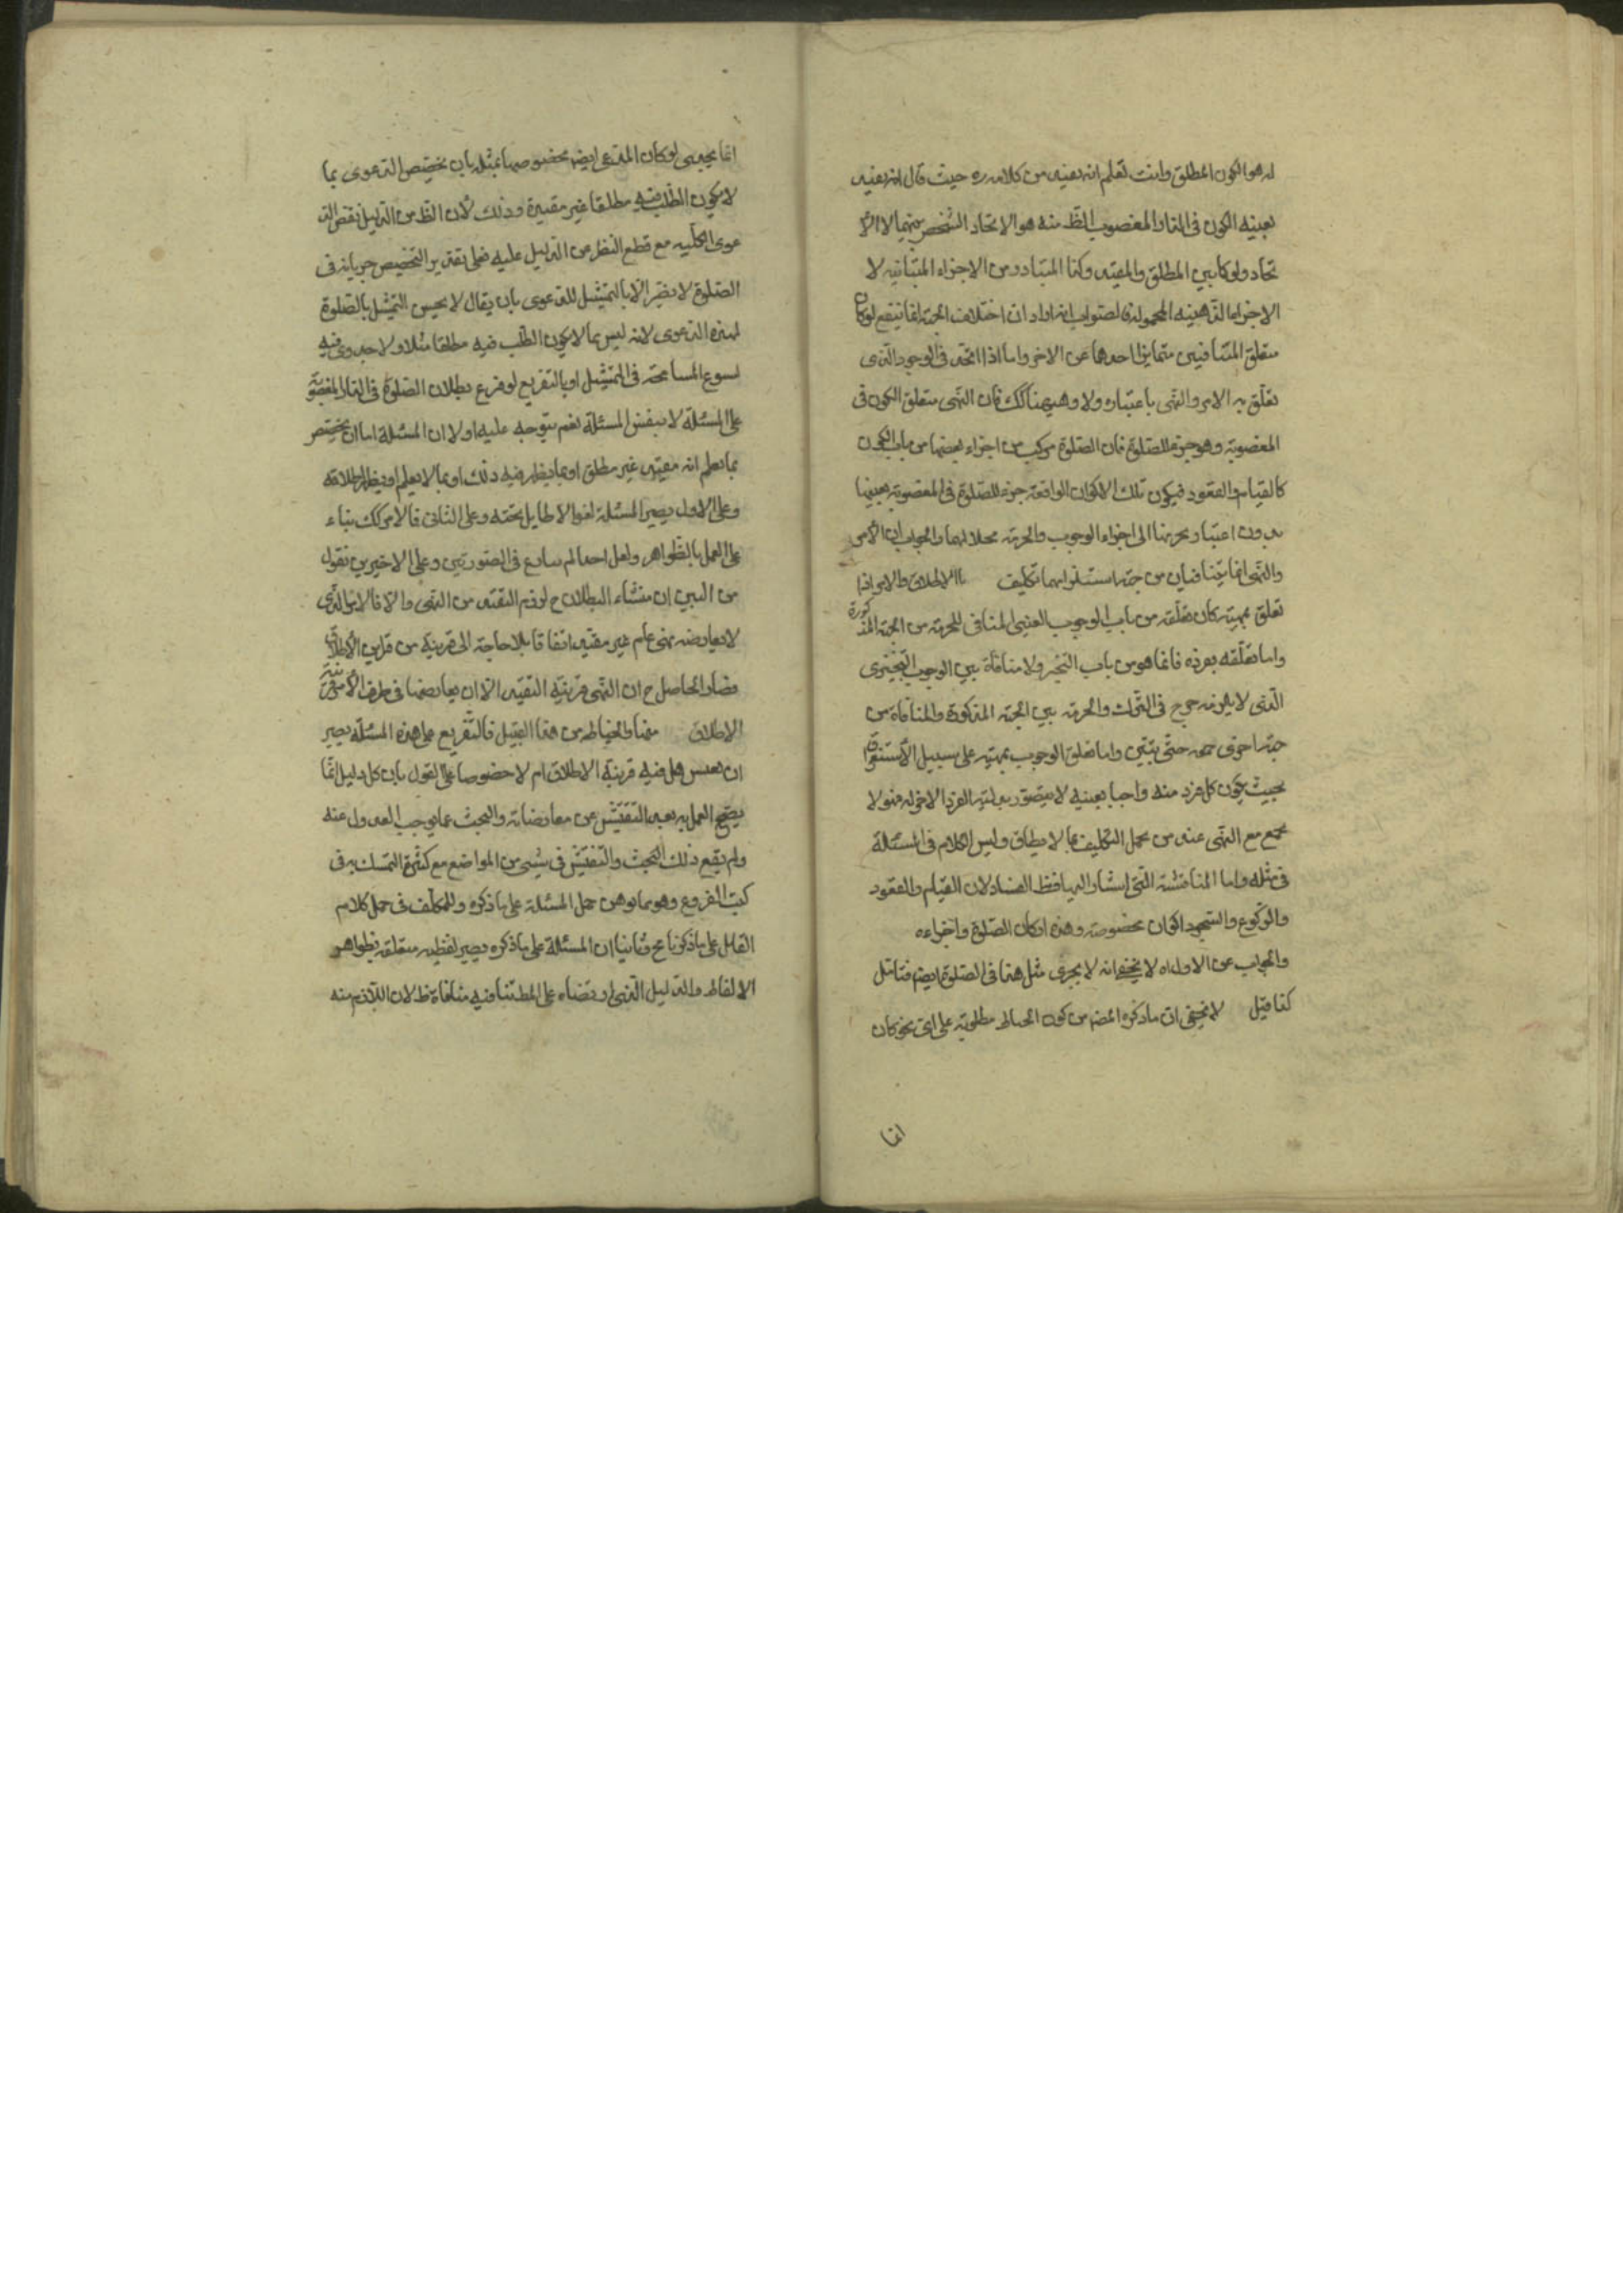 له هو الكون المطلق وانت تعلم انه بعيد من كلامه ره حيث قال انه بعينه
بعينه الكون في الدار المغصوب الظ منه هو الاتحاد الشخص بينهما لا الا
تحاد ولو كا بين المطلق والمقيد وكذا المتبادر من الاجزاء المتباينه لا
الاجزاء الذهنيه المحموله الصواب انه اراد ان اختلاف الجهة انما ينفع لو كان
متعلق المتنافيين متمايزا احدهما عن الاخر واما اذا اتحد في الوجود الذى
تعلق به الامر والنهى باعتباره ولا وهيهنا كك فان النهى متعلق الكون في
المغصوبة وهو جزء للصلوة فان الصلوة مركب من اجزاء بعضها من باب الكون
كالقيام والقعود فيكون تلك الاكوان الواقعة جزء للصلوة في المغصوبة بعينها
بدون اعتبار تحريتها الى اجزاء الوجوب والحرمة محلا لهما والجواب ان الامر
والنهى انما يتنافيان من جهة استلزامهما تكليف ما الا يطاق والامر اذا
تعلق بمهية كان تعلقه من باب الوجوب العينى المنافى للحرمة من الجهة المذكورة
واما تعلقه بفرده فانما هو من باب التخير ولا منافاة بين الوجوب التخييرى
الذى لا يلزمه حرج في الترك والحرمة بين الجهة المذكورة والمنافاة من
جهة اخرى حتى يتبين واما تعلق الوجوب بمهية على سبيل الاستغراق
بحيث يكون كل فرد منه واجبا بعينه لا يتصور بدلية الفرد الاخر له فهو لا
يجمع مع النهى عنه من محل التكليف بما لا يطاق وليس الكلام في المسئلة
في مثله واما المناقشة التى اشار اليها فظ الفساد لان القيام والقعود
والركوع والسجود اكوان مخصوصة وهذه اركان الصلوة واجزاءه
والجواب عن الاول اه لا يخفى انه لا يجرى مثل هذا في الصلوة ايضا فتامل
كذا قيل لا يخفى ان ما ذكره المص من كون الخياط مطلوبة على اى نحو كان
انما
انما يجيى لو كان المدعى ايضا مخصوصا بمثله بان يخصص الدعوى بما
لا يكون الطلب فيه مطلقا غير مقيدة وذلك لان الظ من الدليل نقض الد
عوى الكليه مع قطع النظر عن الدليل عليه فعلى تقدير التخصيص جريانه في
الصلوة لا يضر الا بالتمثيل للدعوى بان يقال لا يحسن التمثيل بالصلوة
لهذه الدعوى لانه ليس مما لا يكون الطلب فيه مطلقا مثلا ولا جدوى فيه
لسوع المسامحة في التمثيل او بالتفريع لو فرع بطلان الصلوة في الدار المغصوبة
على المسئلة لا بنفس المسئلة نعم يتوجه عليه اولا ان المسئلة اما ان يختص
بما يعلم انه مقيد غير مطلق او بما يظهر فيه ذلك او بما لا يعلم او يظهر اطلاقه
وعلى الاول يصير المسئلة لغوا لا طايل تحته وعلى الثانى فالامر كك بناء
على العمل بالظواهر ولعل احدا لم ينازع في الصورتين وعلى الاخيرين نقول
من البين ان منشاء البطلان ح لزوم التقيد من النهى والا فالامر الذى
لا يعارضه نهى عام غير مقيد اتفاقا بلا حاجة الى قرينة من قراين الاطلاق
فصار الحاصل ح ان النهى قرينة التقييد الا ان يعارضها في طرف الامر قرينة
الاطلاق منها والخياطه من هذا القبيل فالتفريع على هذه المسئلة يصير
ان هل فيه قرينة الاطلاق ام لا خصوصا على القول بان كل دليل انما
يصح العمل به بعد التفتيش عن معارضاته والبحث عما يوجب العدول عنه
ولم يقع ذلك البحث والتفتيش في شيئ من المواضع مع كثرة التمسك به في
كتب الفروع وهو مما يوهن حمل المسئلة على ما ذكره وللمتكلف في حمل كلام
القايل على ما ذكرنا مح وثانيا ان المسئلة على ما ذكره يصير لفظيه متعلقة بظواهر
الالفاظ والدليل الذى اوردناه على المط تنافيه منافاة ظ لان اللازم منه